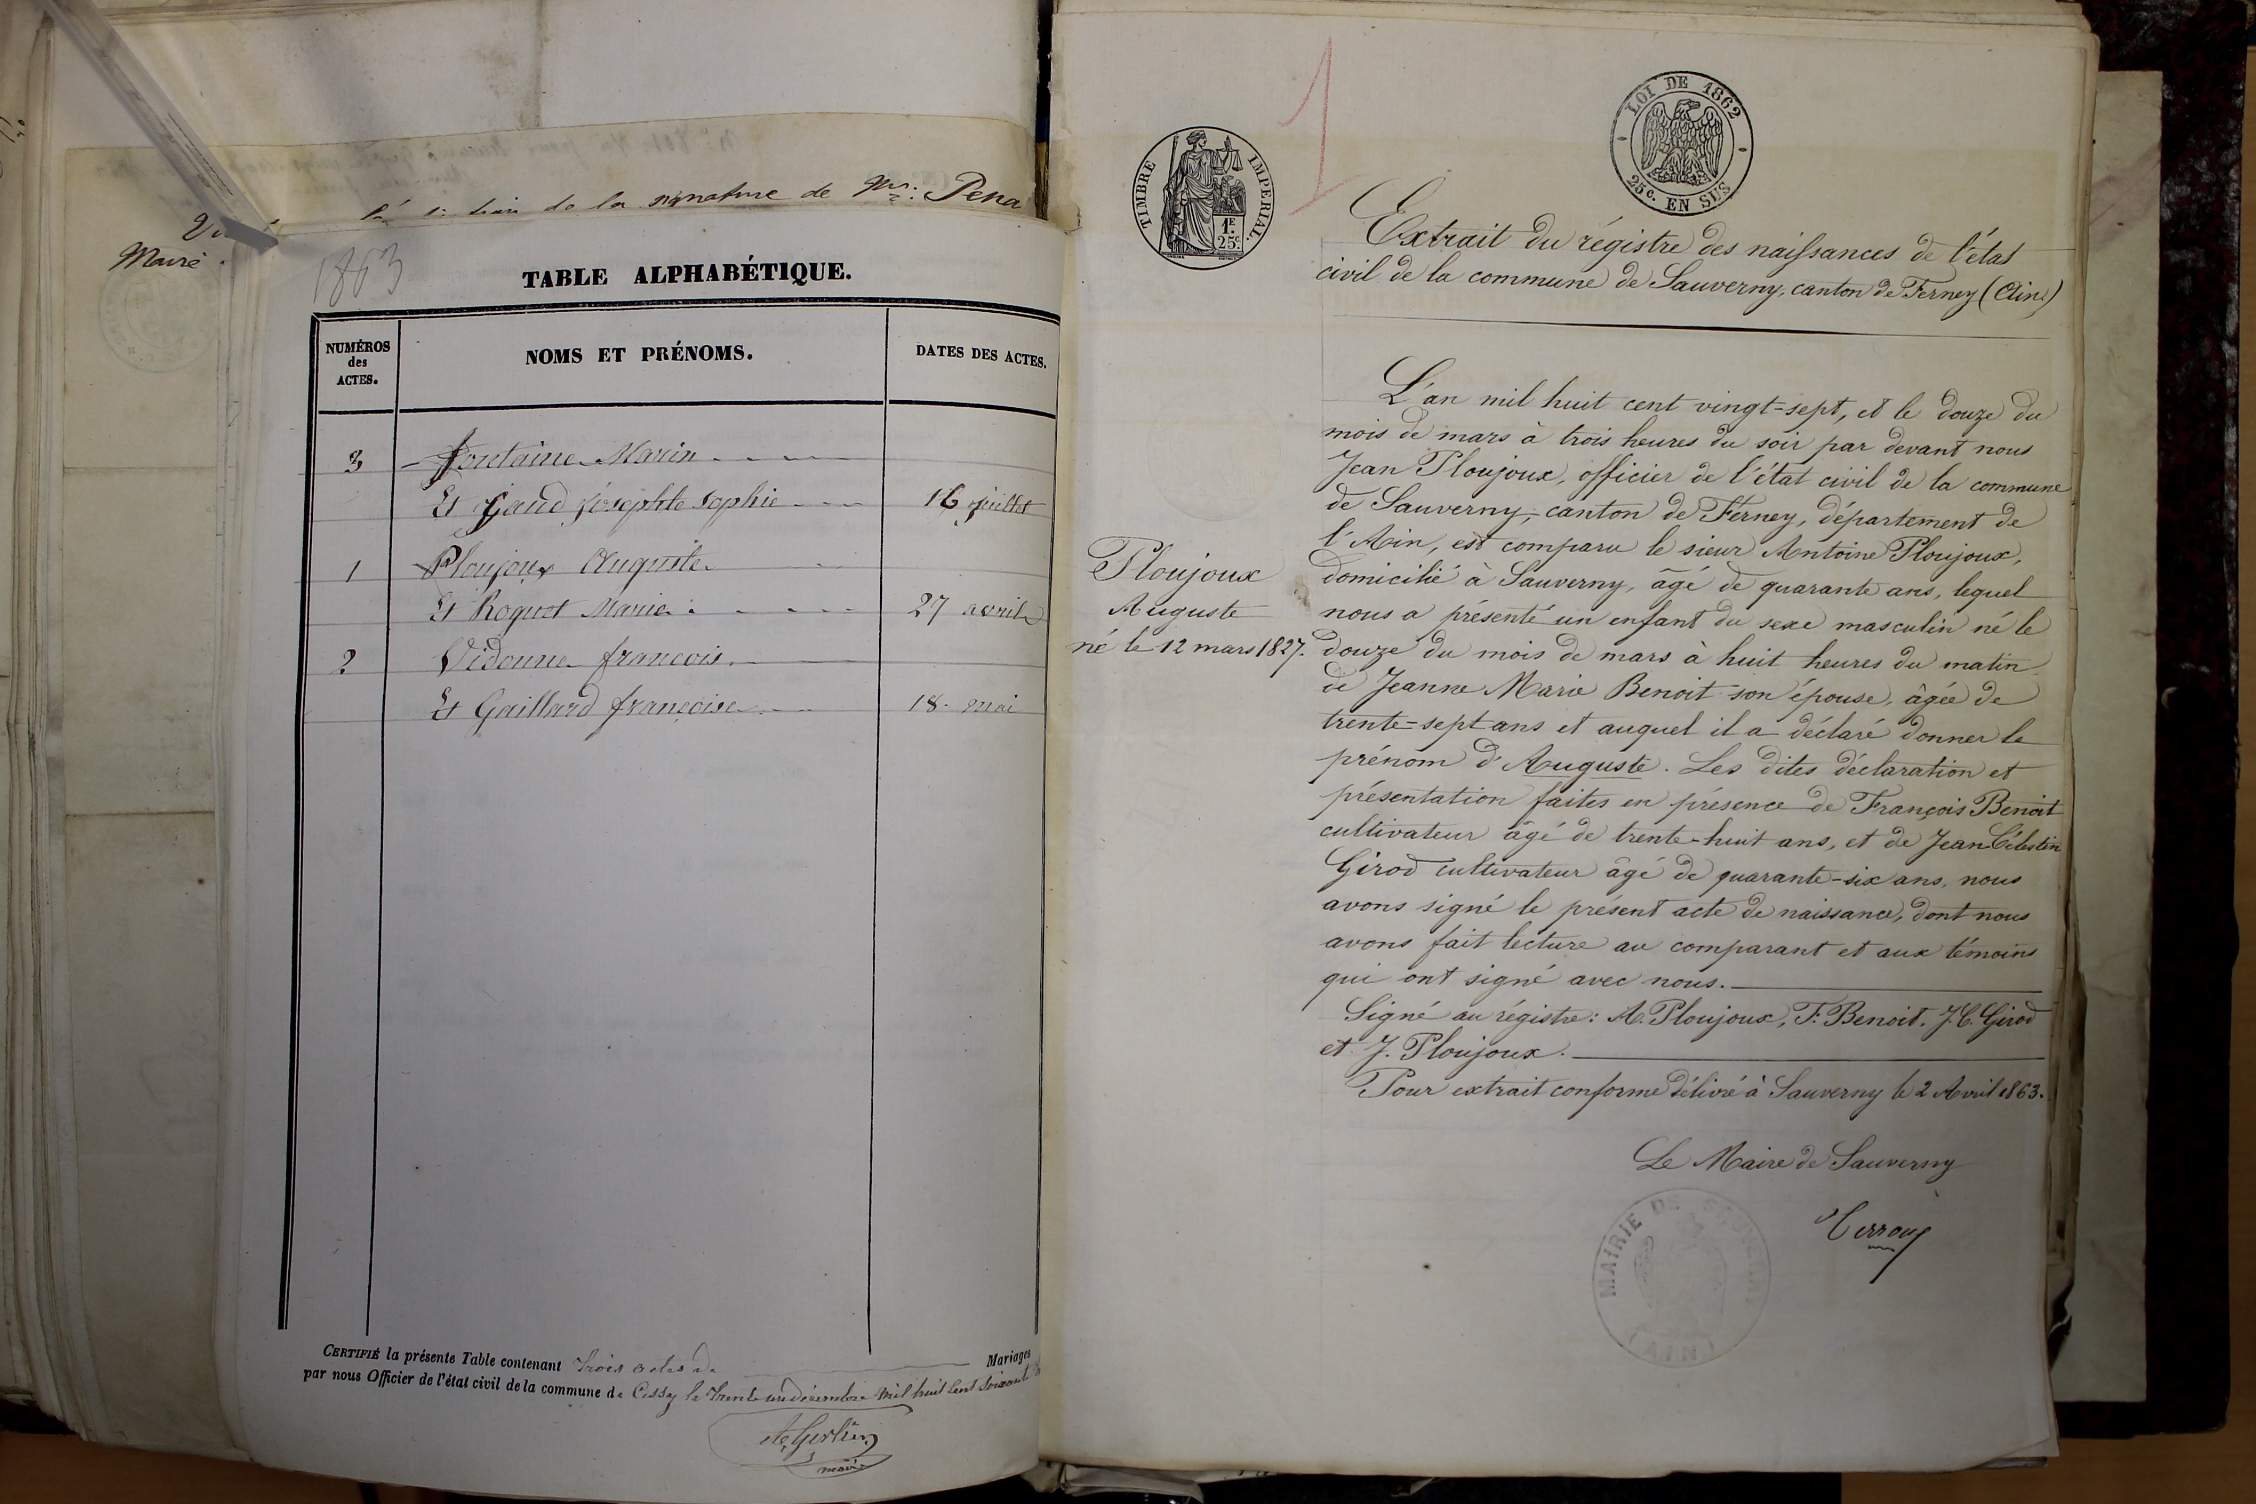 de la signature de Mr. Pena
Maire
1863
TABLE ALPHABÉTIQUE.
NUMÉROS
des
ACTES.
NOMS ET PRÉNOMS.
DATES DES ACTES.
3 Fontaine Marin
Et Gaud Josephte Sophie 16 juillet
1 Ploujoux Auguste
Et Roquet Marie 27 avril
2 Vidonne françois
Et Gaillard françoise 18 mai
CERTIFIÉ la présente Table contenant trois actes de Mariages
par nous Officier de l'état civil de la commune de Cessy le trente un décembre mil huit cent soixante
maire
1
TIMBRE IMPERIAL.
1F.
25c.
LOI DE 1862
25c. EN SUS
Extrait du régistre des naissances de l'état
civil de la commune de Sauverny, canton de Ferney (Ain)
L'an mil huit cent vingt-sept, et le douze du
mois de mars à trois heures du soir par devant nous
Jean Ploujoux, officier de l'état civil de la commune
de Sauverny, canton de Ferney, département de
l'Ain, est comparu le sieur Antoine Ploujoux,
domicilié à Sauverny, âgé de quarante ans, lequel
nous a présenté un enfant du sexe masculin né le
douze du mois de mars à huit heures du matin
de Jeanne Marie Benoit son épouse, âgée de
trente-sept ans et auquel il a déclaré donner le
prénom d'Auguste. Les dites déclaration et
présentation faites en présence de François Benoit
cultivateur âgé de trente-huit ans, et de Jean Célestin
Girod cultivateur âgé de quarante-six ans, nous
avons signé le présent acte de naissance, dont nous
avons fait lecture au comparant et aux témoins
qui ont signé avec nous.
Signé au régistre: A. Ploujoux, F. Benoit. J.C. Girod
et J. Ploujoux.
Pour extrait conforme délivré à Sauverny le 2 Avril 1863.
Ploujoux
Auguste
né le 12 mars 1827.
Le Maire de Sauverny
MAIRIE DE SAUVERNY
(AIN)